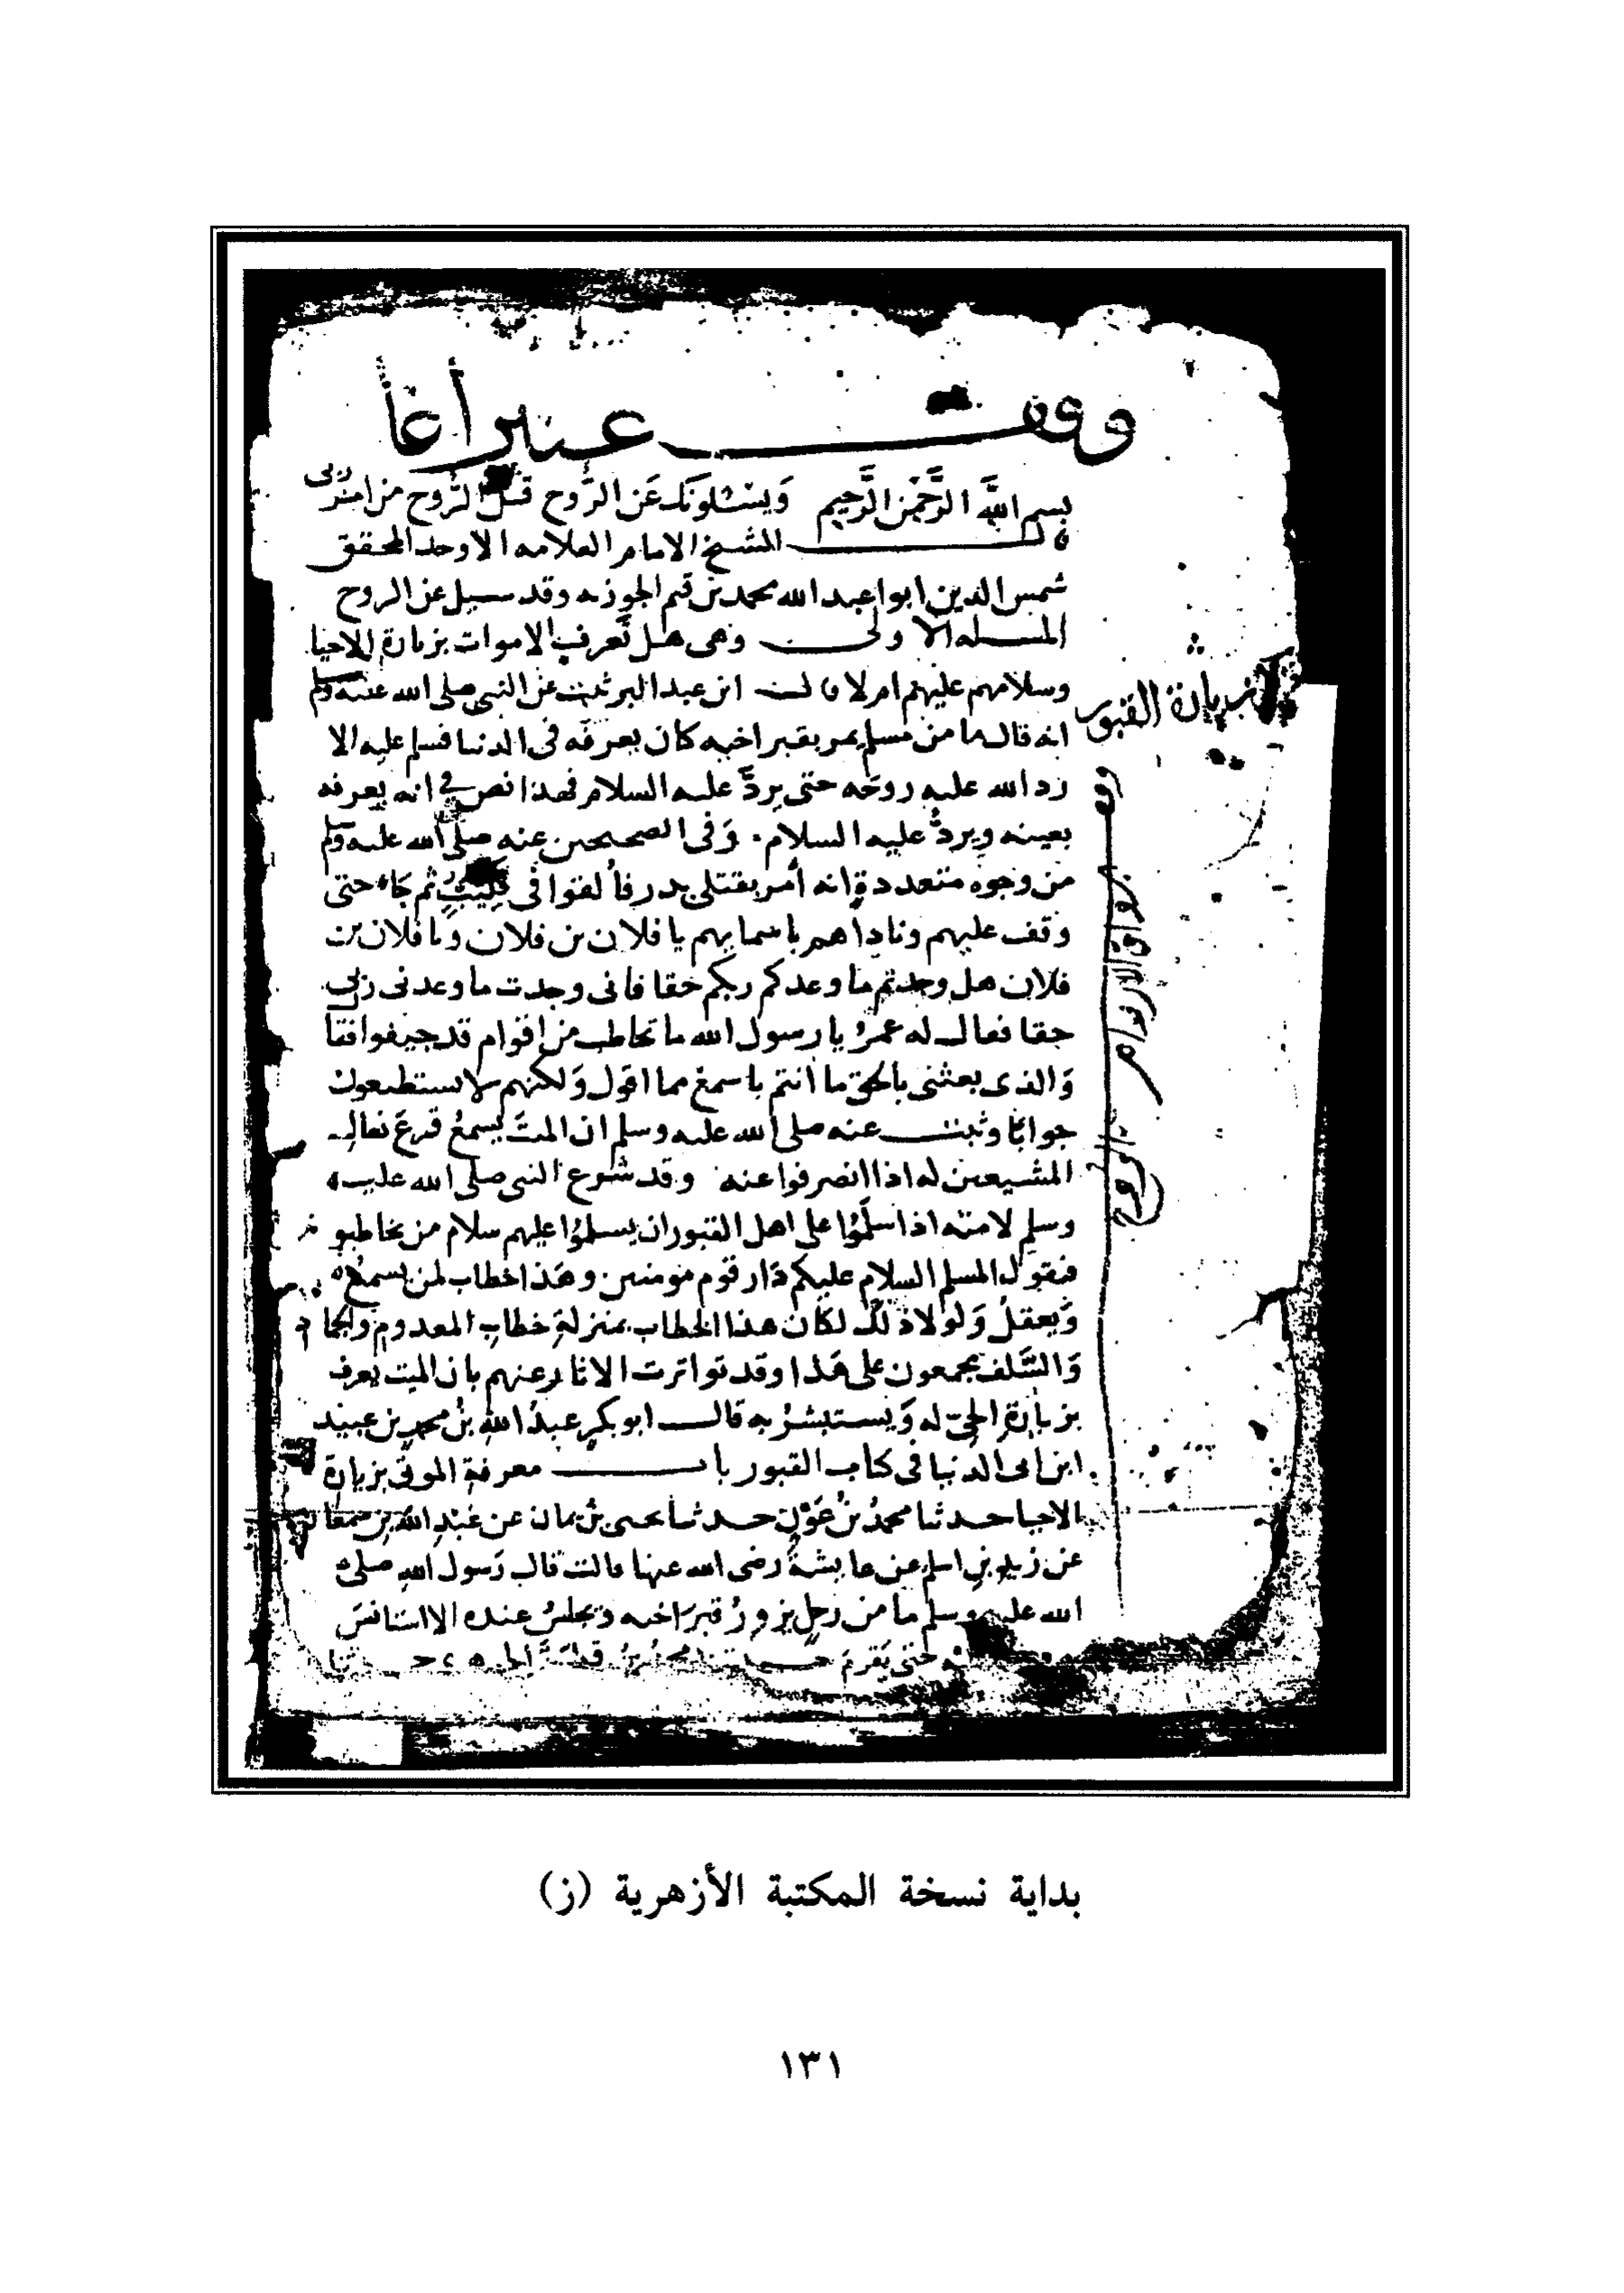 وقف عنبر أغا
بسم الله الرَّحمَن الرَّحيم وَيسئلونَك عَن الرُّوح قل الرُّوح من امر ربى
قال الشيخ الامام العلامه الاوحد المحقق
شمس الدين ابوا عبد الله محمد بن قيم الجوزيه وقد سيل عن الروح
المسله الاولى وهى هل تَعرف الاموات بزيارة الاحيا
وسلامهم عليهم ام لا قال ابن عبد البر ثبت عن النبى صلى الله عليه وسلم
انه قال ما من مسلم يمر بقبر اخيه كان يعرفه فى الدنيا فسلم عليه الا
رد الله عليه روحَه حتى يردَّ عليه السلام فهذا نص في انه يعرفه
بعينه ويردُّ عليه السلام. وَفى الصحيحين عنه صلى الله عليه وسلم
من وجوه متعددة انه أمر بقتلى بدر فأُلقوا فى قَلِيبٍ ثم جَاء حتى
وقف عليهم وناداهم باسمايهم يا فلان بن فلان ويا فلان بن
فلان هل وجدتم ما وعدكم ربكم حقا فانى وجدت ما وعدنى ربى
حقا فقال له عمرُ يا رسول الله ما تخاطب من اقوام قد جيفوا فقا
وَالذى بعثنى بالحق ما انتم باسمع مما اقول وَلكنهم لا يستطيعون
جوابًا وثبت عنه صلى الله عليه وسلم ان الميتَ يسمعُ قرعَ نعالِ
المشيعين له اذا انصرفوا عنه وقد شرع النبى صلى الله عليه
وسلم لامته اذا سلَّمُوا على اهل القبور ان يسلموُا عليهم سلام من يخاطبو
فيقول المسلم السلام عليكم دَار قوم مومنين وهَذا خطاب لمن يسمعُ
وَيعقلُ وَلولا ذلك لكان هذا الخطاب بمنزلةِ خطابِ المعدومِ والجماد
وَالسَّلف مجمعون على هَذا وقد تواترت الاثار عنهم بان الميت يعرف
بزيارة الحيّ له وَيستبشرُ به قال ابو بكرٍ عبدُ اللهِ بنُ محمدِ بن عبيد
ابن ابى الدنيا فى كتاب القبور باب معرفة الموتى بزيارة
الاحيا حدثنا محمدُ بنُ عَوْنٍ حدثنا يحيى بنُ يمان عن عَبْدِ اللهِ بن سمعان
عن زيدِ بنِ اسلم عن عايشةَ رضى الله عنها قالت قال رَسول اللهِ صلى
الله عليه وسلم ما من رجلٍ يزورُ قبرَ اخيه ويجلسُ عنده الا استانسَ
حتى يَقومَ
زيارة القبور
بداية نسخة المكتبة الأزهرية (ز)
١٣١